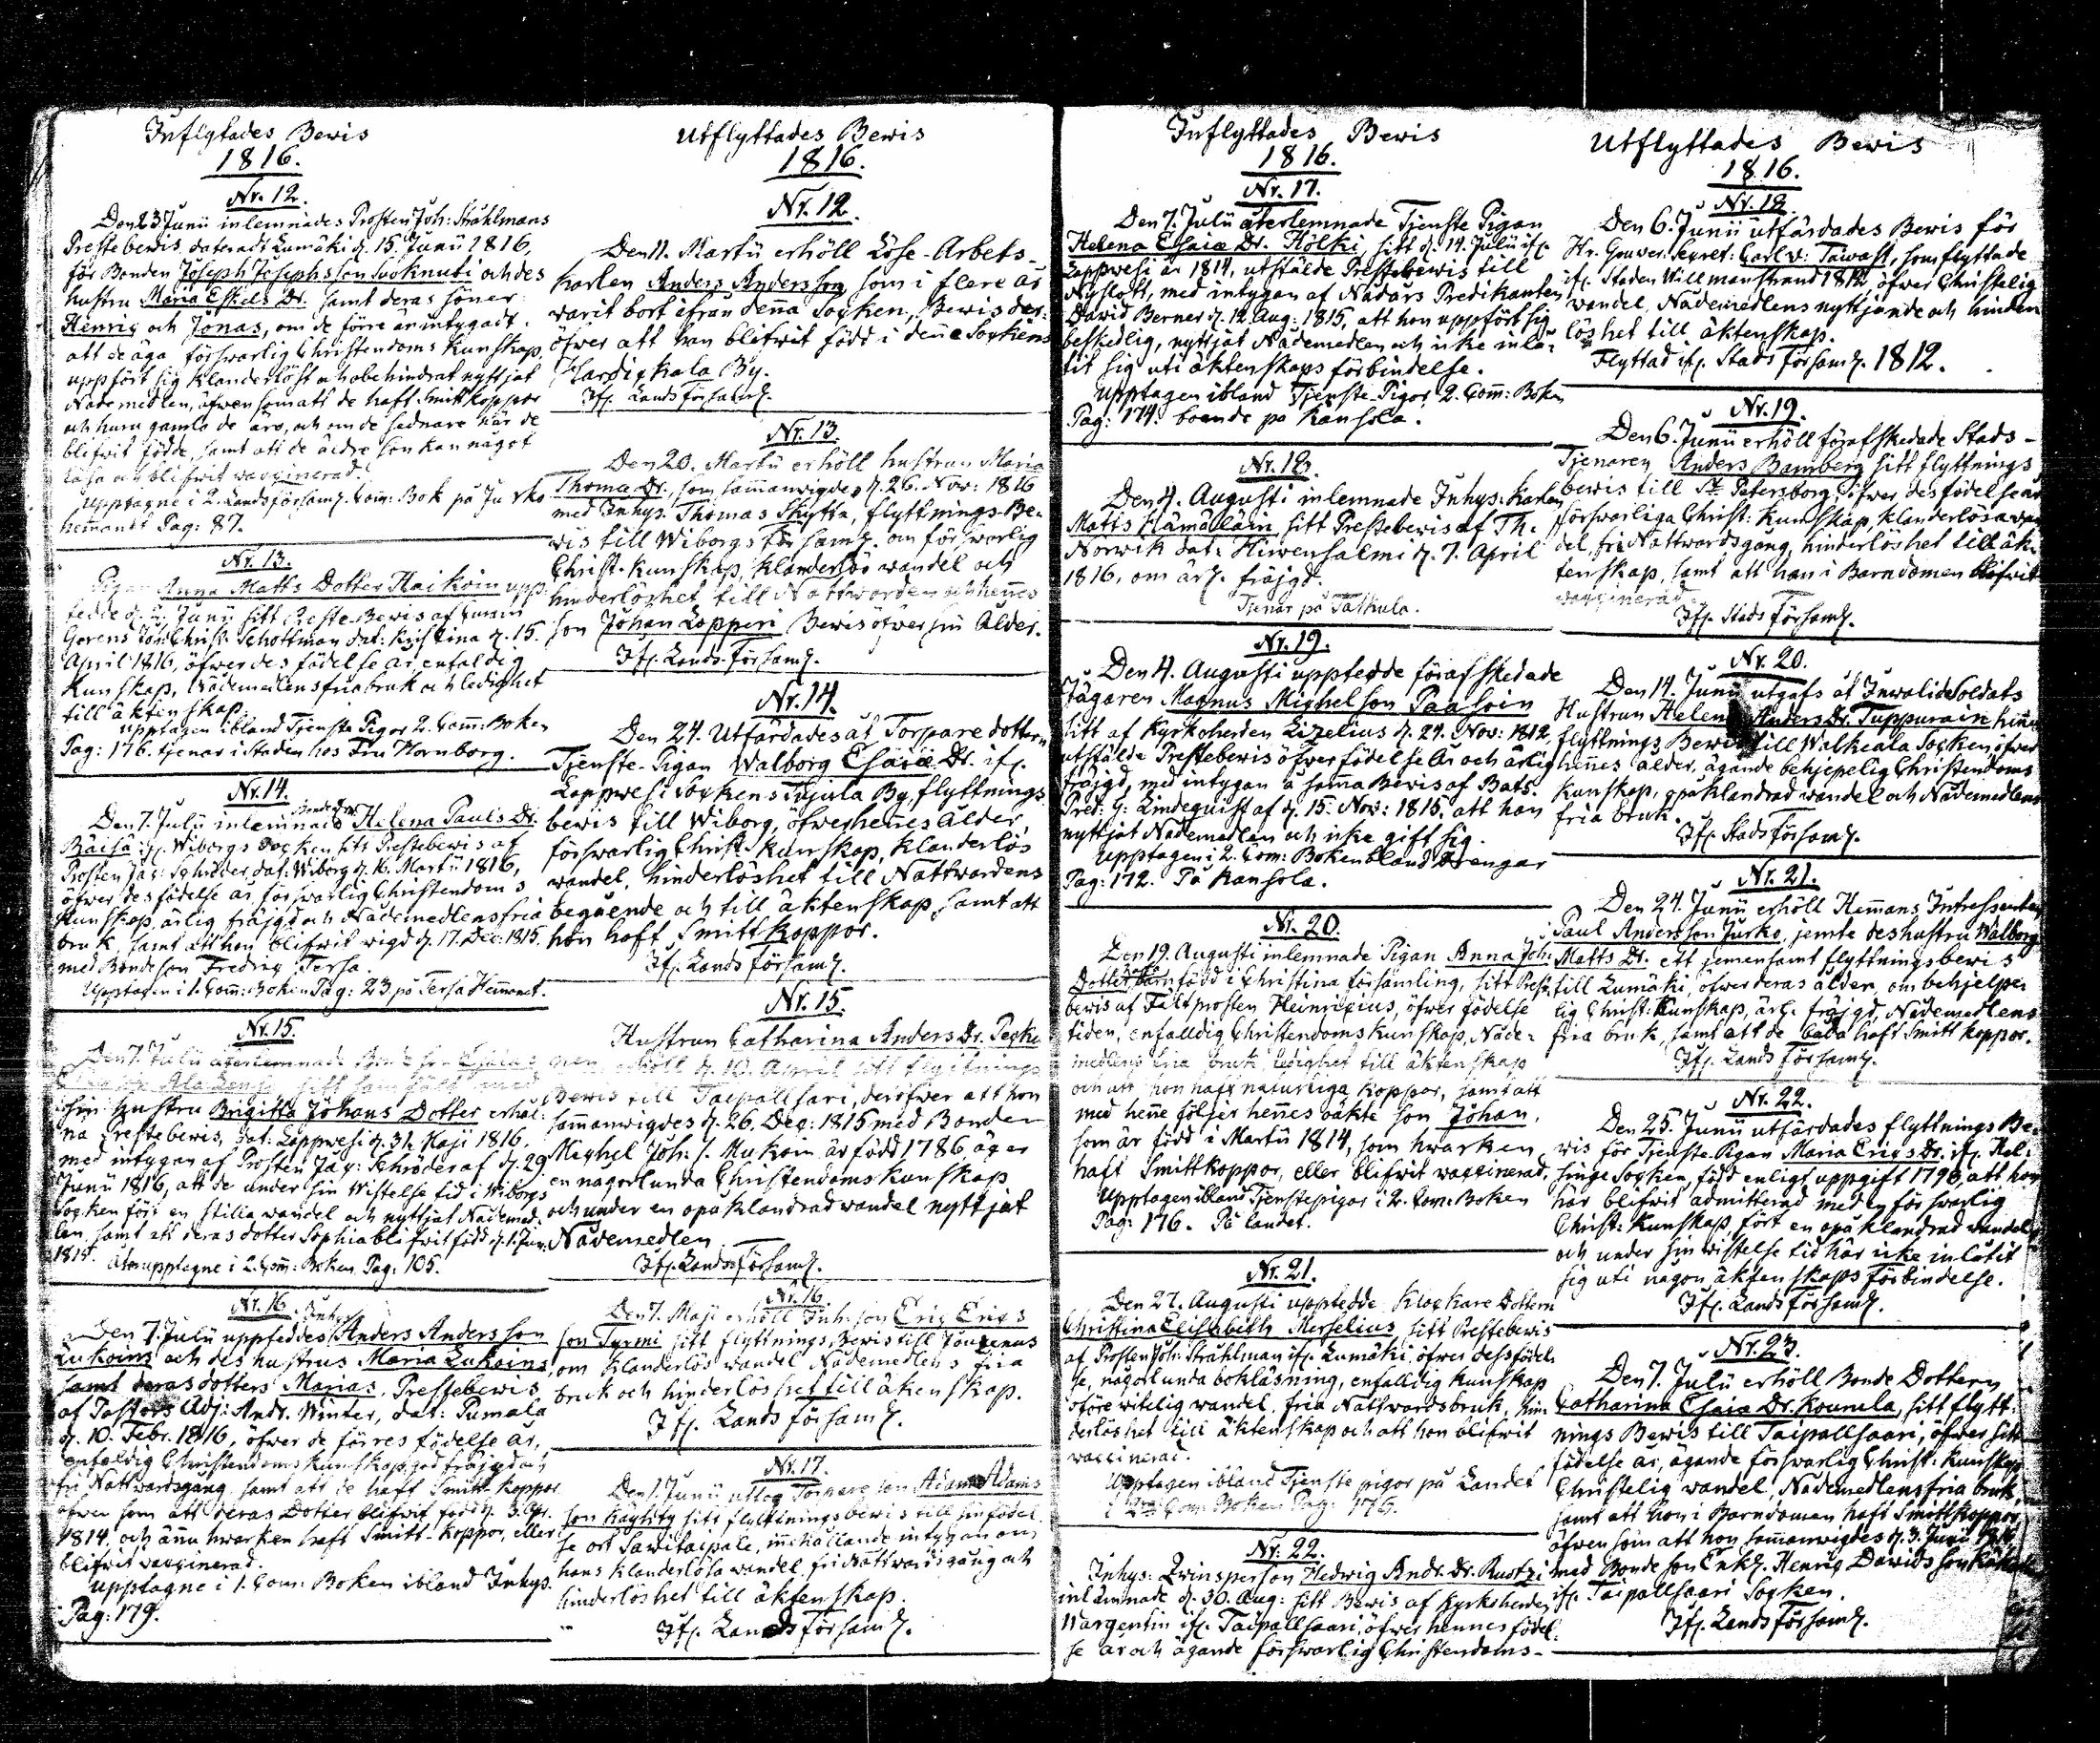 Inflyttades Bewis
1816.
Nr. 12.
Den 23 Junii inlemnades Prosten Joh: Stråhlmans
Prestebewis dateradt Lumäki d. 15. Junii 1816,
för Bonden Joseph Josephsson Suoknuti och des
hustru Maria Eskels Dr. samt deras söner
Henric och Jonas, om de förre är intygadt.
att de äga förswarlig Christendoms Kunskap,
uppfört sig klanderlöst och obehindrat nyttjat
Nådemedlen, äfwen som att de haft Smittkoppor
och huru gamla de äro, och om de sednare när de
blifwit födde, samt att de äldre son kan något
läsa och blifwit waccinerad.
Upptagne i 2. Landsförsaml. Com: Bok på Jurko
hemmanet Pag: 87.
Nr. 13.
Pigan Anna Matts Dotter Haikoin upp-
tedde d. Junii sitt Preste-Bewis af
Gerens Schottman dat: Kristina d. 15.
April 1816, öfwer des födelse år, enfaldig
Kunskap, Nådemedlens fria bruk och ledighet
till äktenskap.
upptagen ibland Tjenste Pigor 2. Com: Boken
Pag: 176. tjenar i staden hos Fru Hornborg.
Nr. 14.
Den 7. Julii inlemnade Bondedottren Helena Pauls Dr.
Räisä ifr. Wiborgs Socken sitt Prestebewis af
Prosten Jac: Schröder, dat: Wiborg d. 16. Martii 1816,
öfwer des födelse år, förswarlig Christendoms
Kunskap, ärlig fräjgd och Nådemedlens fria
bruk, samt att hon blifwit wigd d. 17. Dec: 1815.
med Bondeson Fredric Tersa.
Upptagen i 1. Com: Boken Pag: 23 på Tersa Hemmanet.
Nr. 15.
Den 7. Julii återlemnade Bondeson Esaias
sitt som hält med
sin hustru Brigitta Johans Dotter erhåll-
na Prestebewis, dat: Lappwesi d. 31. Maji 1816.
med intygan af Prosten Jac: Schröder af d. 29
Junii 1816, att de under sin Wistelse tid i Wiborgs
Socken fört en stilla wandel och nyttjat Nådemed-
len, samt att deras dotter Sophia blifwit född d. 1. Jun:
1815. Återupptagne i 2. Com: Boken Pag: 105.
Nr. 16.
Den 7. Julii uppteddes Inhys. Anders Andersson
Lukoins och des hustrus Maria Lukoins,
samt deras dotters Marias, Prestebewis
af Pastors Adj: Andr. Winter, dat: Pumala
d. 10. Febr. 1816, öfwer de förres födelse år,
enfaldig Christendoms kunskap, god fräjgd och
fri Nattwardsgång, samt att de haft Smitt-koppor
äfwen som att deras Dotter blifwit född d. 3.
1814, och ännu hwarken haft Smitt-koppor, eller
blifwit waccinerad.
Upptagne i 1. Com: Boken ibland Inhys.
Pag: 179.
Utflyttades Bewis
1816.
Nr. 12.
Den 11. Martii erhöll Löse-Arbets-
karlen Anders Andersson, som i flere år
warit bort ifrån denna Socken, Bewis der-
öfwer att han blifwit född i denna Sockens
Hardikkala By.
Ifr. Lands Församl.
Nr. 13.
Den 20. Martii erhöll hustrun Maria
Thoma Dr. som sammanwigdes d. 26. Nov: 1816
med Inhys. Thomas Skyttä, flyttnings-Be-
wis till Wiborgs Församl. om förswarlig
Christ. kunskap, klanderlös wandel och
hinderlöshet till Nattwarden och hennes
son Johan Lopperi Bewis öfwer sin Ålder.
Ifr. Lands-Församl.
Nr. 14.
Den 24. Utfärdades åt Torparedottern
Tjenste-Pigan Walborg Esaiæ Dr. ifr.
Lappwesi Sockens Tujula By, flyttnings
bewis till Wiborg, öfwer hennes ålder,
förswarlig Christ. kunskap, klanderlös
wandel, hinderlöshet till Nattwardens
begående och till äktenskap, samt att
hon haft Smittkoppor.
Ifr. Lands församl.
Nr. 15.
Hustrun Catharina Anders Dr. Pecku
nen erhöll d. 10. April sitt flyttnings
Bewis till Taipallsari, deröfwer att hon
sammanwigdes d. 26. Dec: 1815 med Bonden
Michel Joh: s. Mukoin är född 1786 äger
en någorlunda Christendoms kunskap
och under en opåklandrad wandel nyttjat
Nådemedlen.
Ifr. Lands Församl.
Nr. 16
Den 7. Maji erhöll Inh. son Eric Erics
son Tyrmi sitt flyttnings Bewis till Jouzenus
om klanderlös wandel Nådemedlens fria
bruk och hinderlöshet till äktenskap.
Ifr. Lands Församl.
Nr. 17.
Den 1. Junii uttog Torpare son Adam Adams
son Käyhty sitt flyttningsbewis till sin födel-
se ort Sawitaipale, innehållande intygan om
hans klanderlösa wandel, fri Nattwardsgång och
hinderlöshet till äktenskap.
Ifr. Lands församl.
Inflyttades Bewis
1816.
Nr. 17.
Den 7. Julii återlemnade Tjenste Pigan
Helena Esaiæ Dr. Hölki, sitt d. 14. Julii ifr.
Lappwesi år 1814, utstälde Prestebewis till
Nyslott, med intygan af Nådårs Predikanten
David Berner d. 12. Aug: 1815, att hon uppfört sig
beskedlig, nyttjat Nådemedlen och icke inlå-
tit sig uti äktenskaps förbindelse.
Upptagen ibland Tjenste-Pigor 2. Com: Boken
Pag: 174. boende på Kansola.
Nr. 18.
Den 4. Augusti inlemnade Inhys. Karlen
Matts Hämäläin sitt Prestebewis af Th.
Norwik dat: Hirwensalmi d. 7. April
1816, om ärl. fräjgd.
Tjenar på Tatkula.
Nr. 19.
Den 4. Augusti uppteedde förafskedade
Jägaren Magnus Michelson Paasoin
sitt af Kyrkoherden Lizelius d. 24. Nov: 1812,
utstälde Prestebewis öfwer födelse År och ärlig
fräjgd, med intygan å samma Bewis af Bats.
Pred: G: Lindequist af d. 15. Nov: 1815. att han
nyttjat Nådemedlen och icke gift sig.
Upptagen i 2. Com: Boken bland Drengar
Pag: 172. På Kansola.
Nr. 20.
Den 19. Augusti inlemnade Pigan Anna Joh:
Dotter född i Christina församling, sitt Preste
bewis af Fältprosten Heinricius, öfwer födelse
tiden, enfalldig Christendoms kunskap, Nåde-
medlens fria bruk, ledighet till äktenskap
och att hon haft naturliga koppor, samt att
med henne följer hennes oäkte son Johan,
som är född i Martii 1814, som hwarken
haft Smittkoppor, eller blifwit waccinerad.
Upptagen ibland Tjenstepigor i 2. Com: Boken
Pag: 176. På landet.
Nr. 21.
Den 27. Augusti uppteedde Klockare Dottern
Christina Elisabeth Merselius sitt Prestebewis
af Prosten Joh: Strahlman ifr. Lumäki, öfwer dess födel-
se, någorlunda bokläsning, enfalldig kunskap
oförwitelig wandel, fria Nattwardsbruk, hin-
derlöshet till äktenskap och att hon blifwit
waccinerad.
Upptagen ibland Tjenste pigor på Landet
i 2dra Com: Boken Pag: 176.
Nr. 22.
Inhys: Qwinsperson Hedwig Andr. Dr. Rustzi
inlämnade d. 30. Aug: sitt Bewis af Kyrkoherden
Wargentin ifr. Taipallsaari, öfwer hennes födel-
se år och ägande förswarlig Christendoms-
Utflyttades Bewis
1816.
Nr. 18.
Den 6. Junii utfärdades Bewis för
Hr. Gouver. Secret: Carl v: Tawast, som flyttade
ifr. Staden Willmanstrand 1812, öfwer Christelig
wandel, Nådemedlens nyttjande och hinder
löshet till äktenskap.
Flyttad ifr. Stads församl. 1812.
Nr. 19.
Den 6. Junii erhöll förafskedade Stads-
Tjenaren Anders Bamberg sitt flyttnings
bewis till St. Petersborg, öfwer des födelse år
förswarliga Christ: Kunskap, klanderlösa wan
del, fri Nattwardsgång, hinderlöshet till äk-
tenskap, samt att han i Barndomen blifwit
waccinerad.
Ifr. Stads Församl.
Nr. 20.
Den 14. Junii utgafs åt Inwalide Soldats
Hustrun Helena Anders Dr. Tuppurain hennes
flyttnings Bewis till Walkeala Socken öfwer
hennes ålder, ägande behjelpelig Christendoms
kunskap, opåklandrad wandel och Nådemedlens
fria bruk.
Ifr. Stads församl.
Nr. 21.
Den 24. Junii erhöll Hemans Intressenten
Paul Andersson Jurko, jemte des hustru Walborg
Matts Dr. ett gemensamt flyttningsbewis
till Lumäki, öfwer deras ålder, om behjelpe-
lig Christ: Kunskap, ärl. fräjgd, Nådemedlens
fria bruk, samt att de bada haft Smittkoppor.
Ifr. Lands församl.
Nr. 22.
Den 25. Junii utfärdades flyttnings Be-
wis för Tjenste-Pigan Maria Erics Dr. ifr. Hel-
singe Socken, född enligt uppgift 1798, att hon
här blifwit admitterad med en förswarlig
Christ: Kunskap, fört en opåklandrad wandel,
och under sin wistelse tid här icke inlåtit
sig uti någon äktenskaps förbindelse.
Ifr. Lands församl.
Nr. 23.
Den 7. Julii erhöll Bonde Dottern
Catharina Esaiæ Dr. Kounela, sitt flytt-
nings Bewis till Taipallsaari, öfwer sitt
födelse år, ägande förswarlig Christ: kunskap
Christelig wandel, Nådemedlens fria bruk,
samt att hon i Barndomen haft Smittkoppor,
äfwen som att hon sammanwigdes d. 3. Junii 1816
med Bonde son Enkl. Henric Davidsson
ifr. Taipallsaari Socken.
Ifr. Lands Församl.